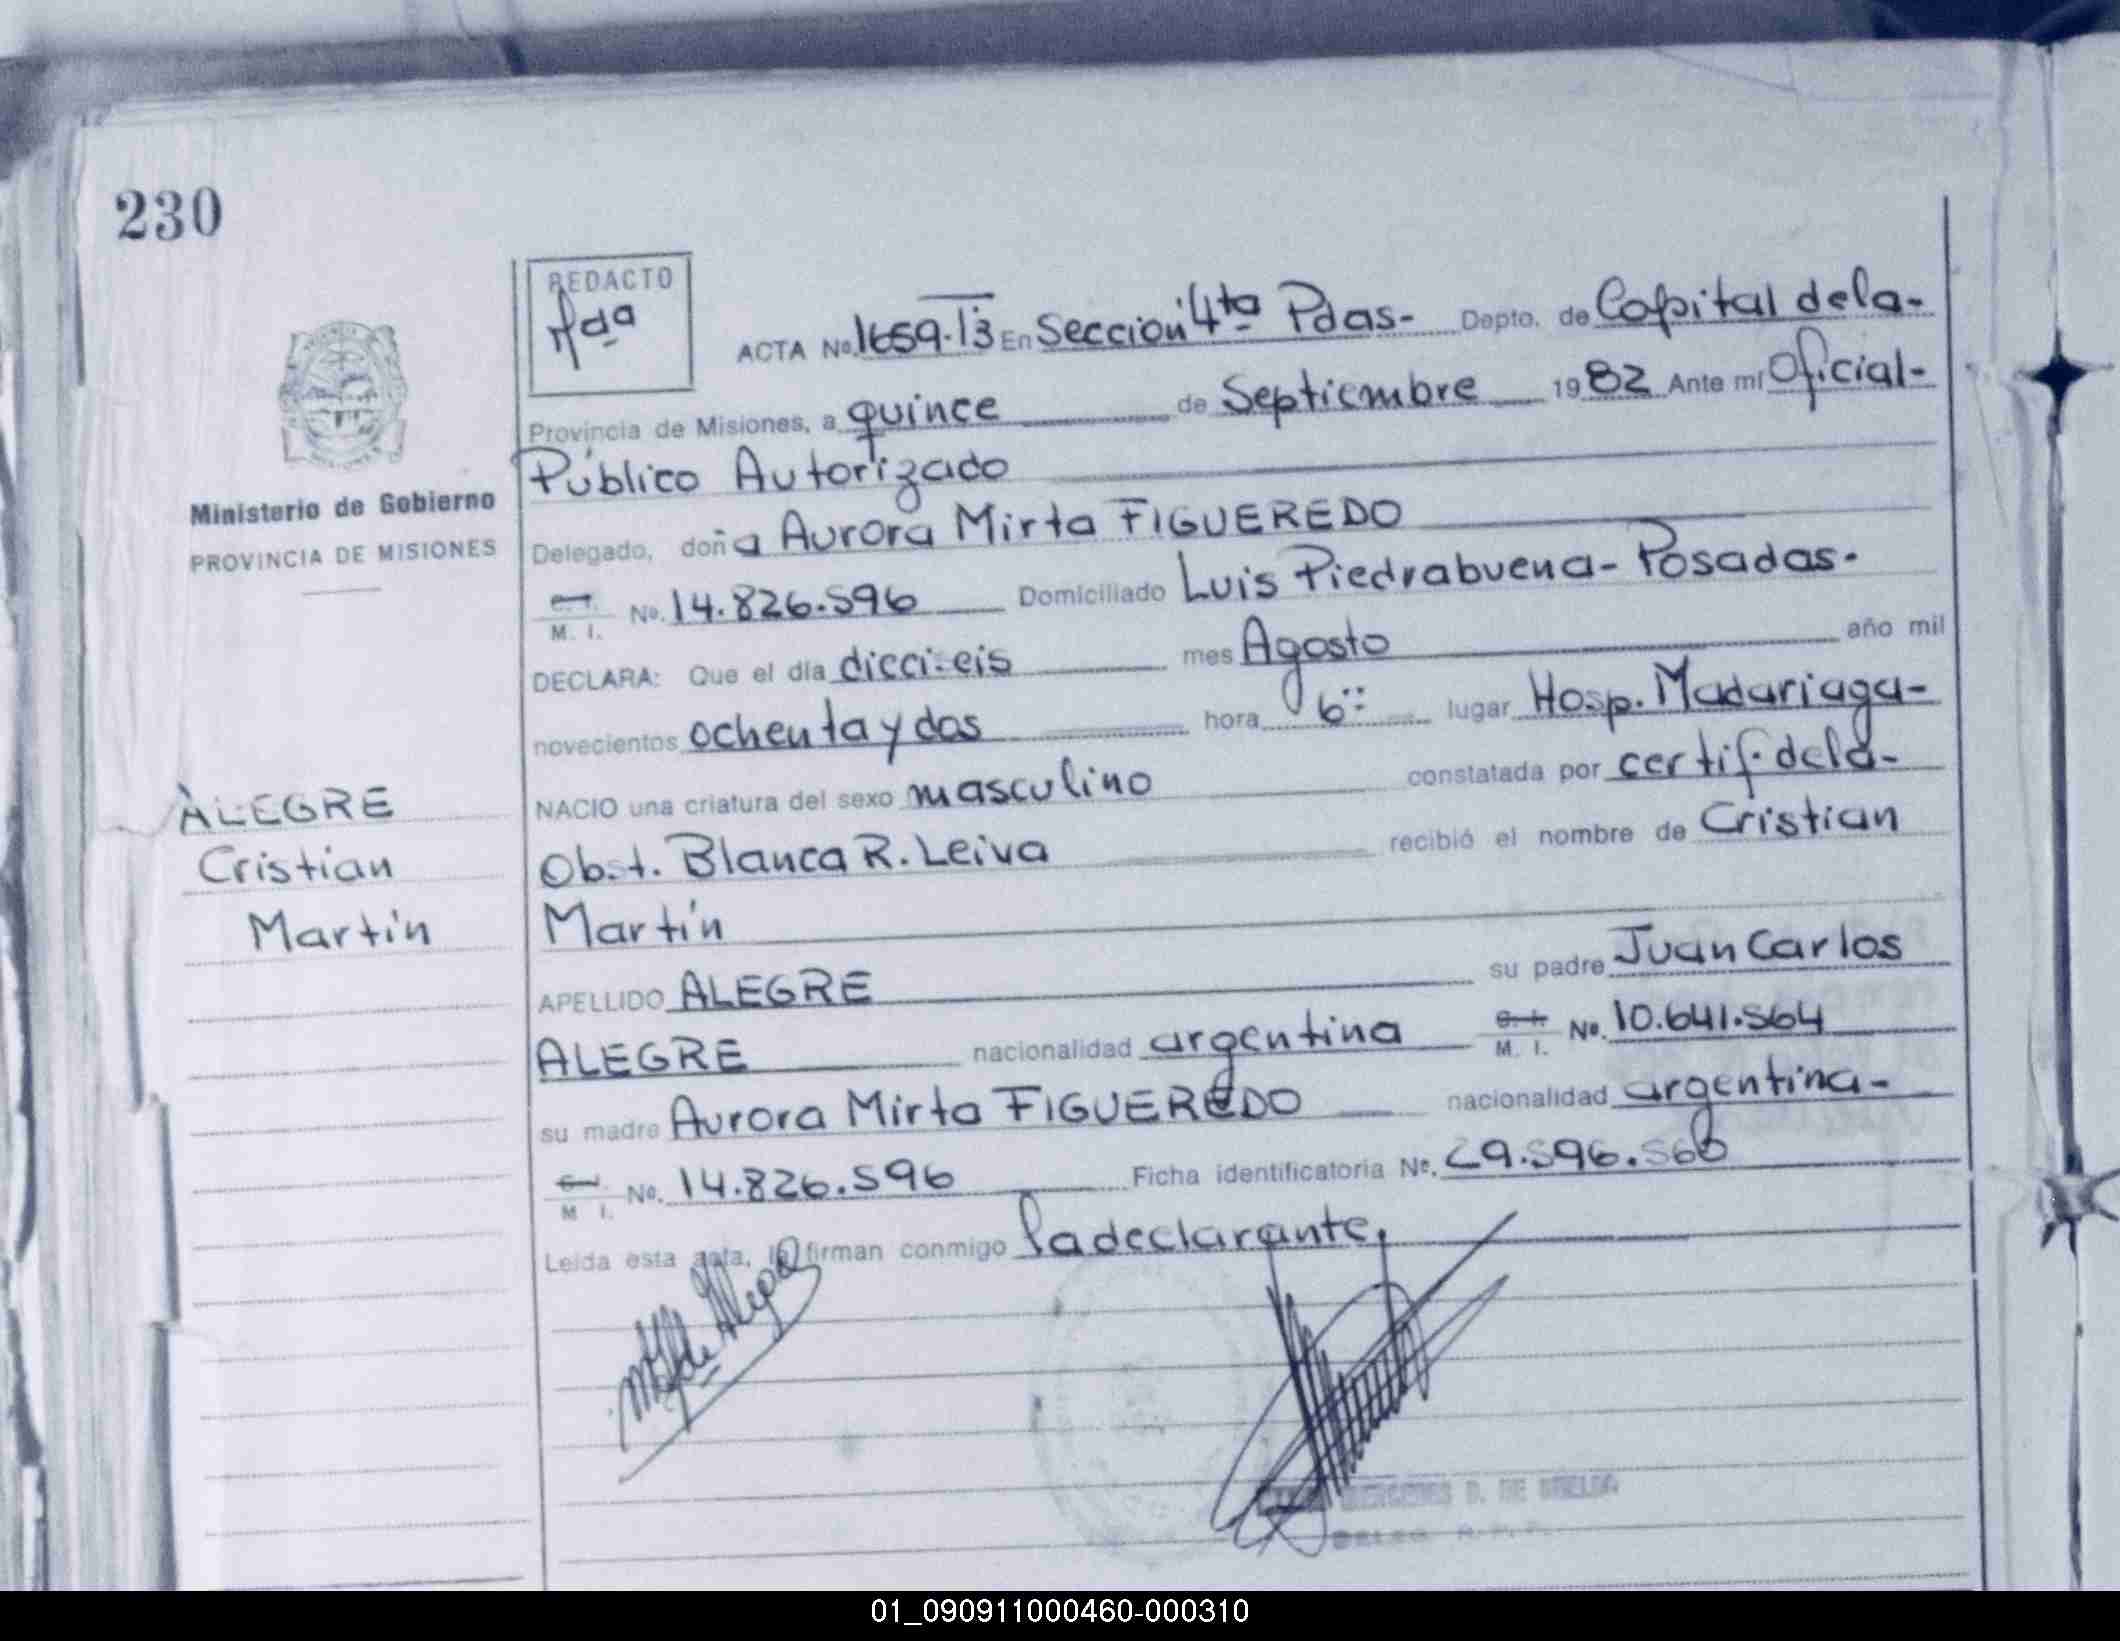 230
REDACTO
ACTA No. 1659-13 En Sección 4ta Pdas- Depto. de Capital dela-
Provincia de Misiones, a quince de Septiembre 1982 Ante mí Oficial-
Público Autorizado
Ministerio de Gobierno
PROVINCIA DE MISIONES
Delegado, doña Aurora Mirta FIGUEREDO
C. I.
M. I. No. 14.826.596 Domiciliado Luis Piedrabuena- Posadas.
DECLARA: Que el día mes Agosto año mil
novecientos ochenta y dos hora 6:: lugar Hosp. Madariaga-
NACIO una criatura del sexo masculino constatada por certif. dela-
Obst. Blanca R. Leiva recibió el nombre de Cristian
Martín
ALEGRE
Cristian
Martín
APELLIDO ALEGRE su padre Juan Carlos
ALEGRE nacionalidad argentina C. I. M. I. No. 10.641.564
su madre Aurora Mirta FIGUEREDO nacionalidad argentina-
M I. No. 14.826.596 Ficha identificatoria No. 29.596.560
Leída esta acta, la firman conmigo la declarante,
01_090911000460-000310